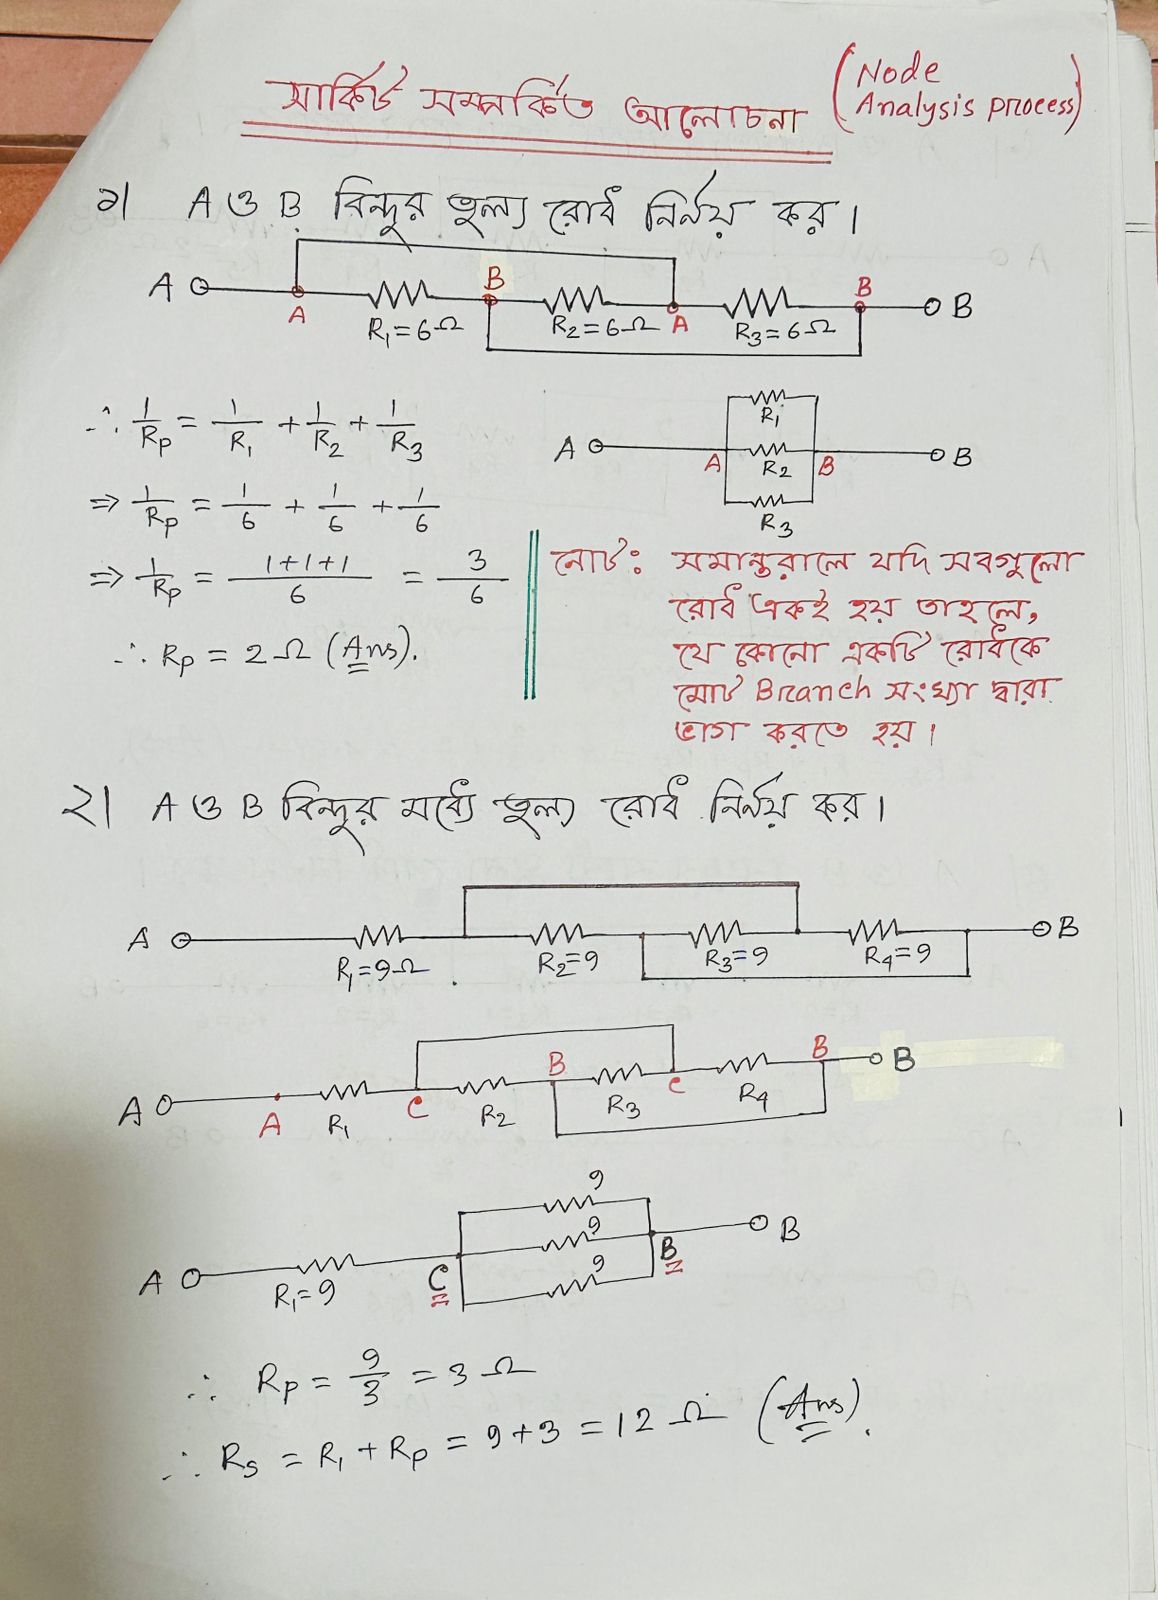 সার্কিট সম্পর্কিত আলোচনা (Node Analysis process)
১। A ও B বিন্দুর তুল্য রোধ নির্নয় কর।
A A R₁=6Ω B R₂=6Ω A R₃=6Ω B B
∴ 1/Rp = 1/R₁ + 1/R₂ + 1/R₃
A A R₁ R₂ R₃ B B
⇒ 1/Rp = 1/6 + 1/6 + 1/6
⇒ 1/Rp = 1+1+1/6 = 3/6
∴ Rp = 2Ω (Ans).
নোট: সমান্তরালে যদি সবগুলো
রোধ একই হয় তাহলে,
যে কোনো একটি রোধকে
মোট Branch সংখ্যা দ্বারা
ভাগ করতে হয়।
২। A ও B বিন্দুর মধ্যে তুল্য রোধ নির্নয় কর।
A R₁=9Ω R₂=9 R₃=9 R₄=9 B
A A R₁ C R₂ B R₃ C R₄ B B
A R₁=9 C 9 9 9 B B
∴ Rp = 9/3 = 3Ω
∴ Rs = R₁ + Rp = 9+3 = 12Ω (Ans).